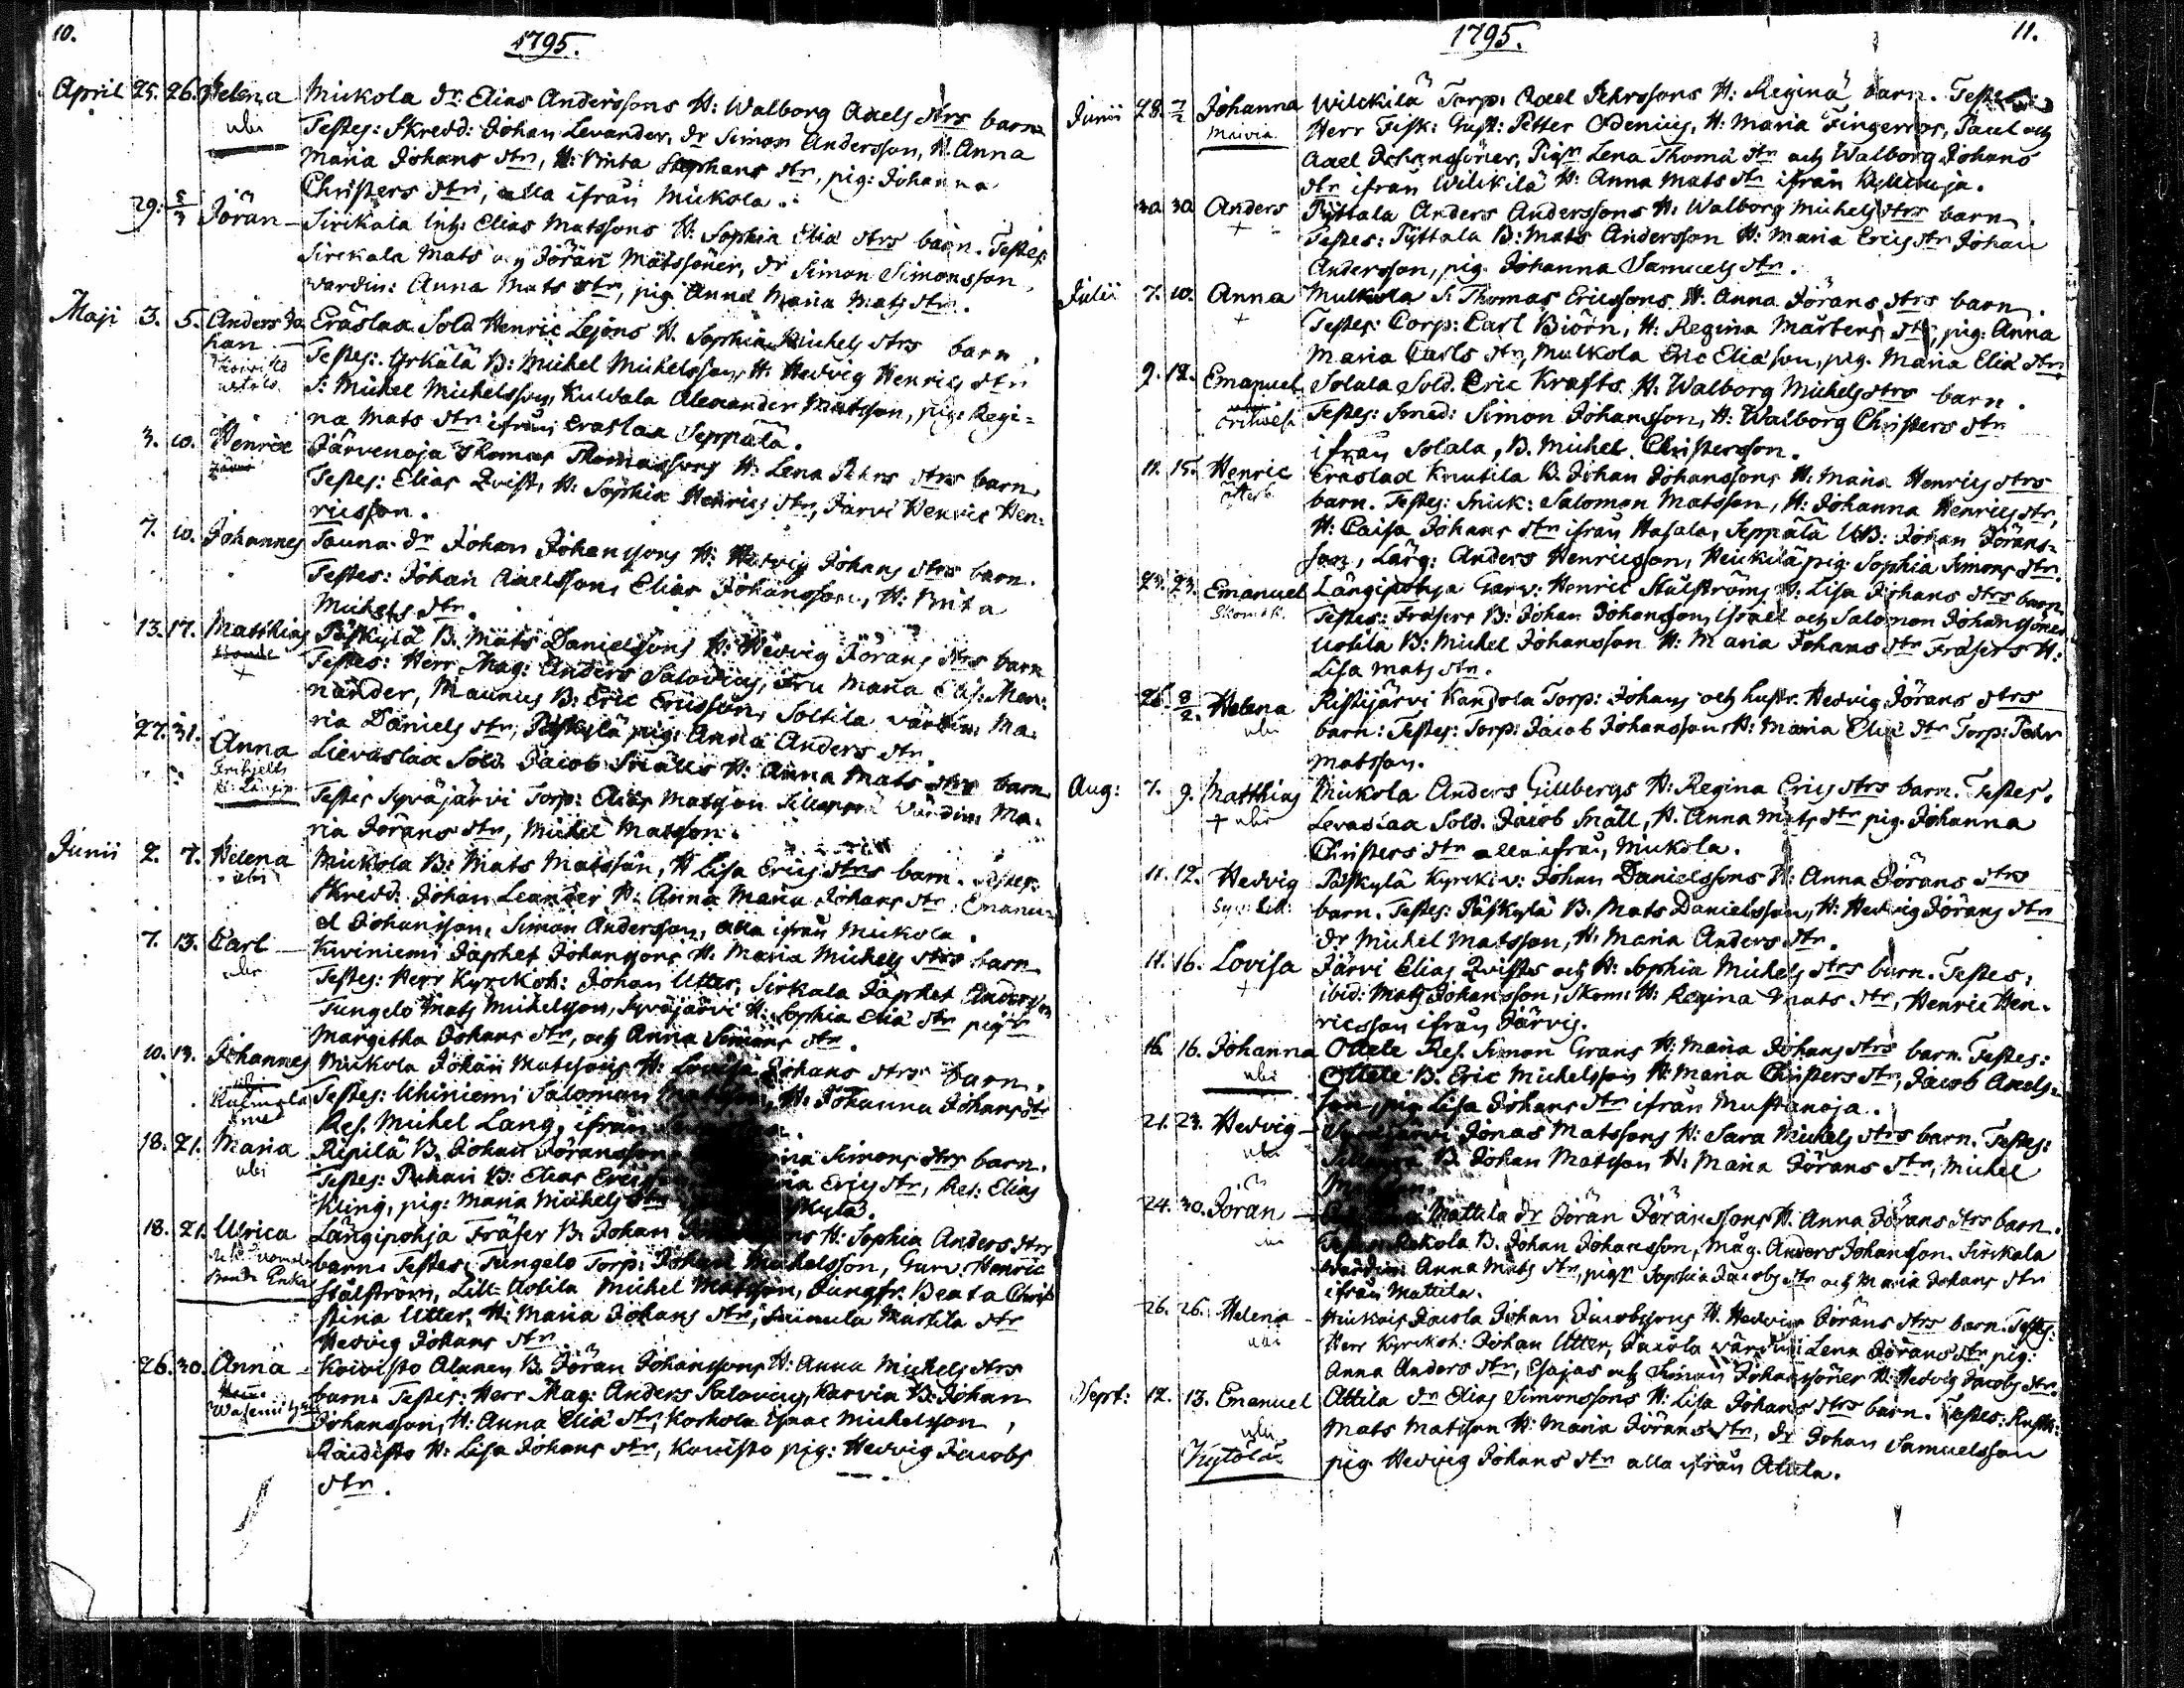 10.
1795.
April 25. 26. Helena Mickola dr. Elias Anderssons H: Walborg Axels dtrs barn
ubi Testes: Skredd: Johan Levander, dr Simon Andersson, H. Anna
Maria Johans dtr, H: Brita Stephans dtr, pig: Johanna
Christers dtr, alla ifrån Mickola.
29. 5/3 Jöran - Sirikala Inh: Elias Matssons H: Sophia Eliæ dtrs barn. Testes
Sirekala Mats och Jöran Matssöner, dr Simon Simonsson,
wärdin: Anna Mats dtr, pig Anna Maria Mats dtr.
Maji 3. 5. Anders Jo Eräslax Sold Henric Lejons H. Sophia Michels dtrs barn.
han - Testes: Yrkälä B: Michel Michelsson H: Hedvig Henrics dtr
S: Michel Michelsson, Kuwala Alexander Matsson, pig: Regi=
na Mats dtr ifrån Eraslax Seppälä.
3. 10. Henric Järvenoja Thomas Thomassons H: Lena Pehrs dtrs barn
Testes: Elias Qvist, H: Sophia Henrics dtr, Järvi Henric Hen=
ricsson.
7. 10. Johannes Sauna dr Johan Johanssons H: Hedvig Johans dtrs barn.
Testes: Johan Axelsson, Elias Johansson, H: Brita
Michels dtr.
13. 17. Matthias Päskylä B. Mats Danielssons H: Hedvig Jörans dtrs barn
+ Testes: Herr Mag: Anders Salovius, Fru Maria Elis: Men=
nander, Maunus B: Eric Ericsson, Soltila wärdin: Ma=
ria Daniels dtr, Päskylä pig: Anna Anders dtr.
27. 31. Anna Lievaslax Sold. Jacob Snälls H: Anna Mats dtrs barn
Testes Syväjärvi Torp: Elias Matsson Sillanpä wärdin: Ma=
ria Jörans dtr, Michel Matsson.
Junii 2. 7. Helena Mickola B: Mats Matsson, H Lisa Erics dtrs barn. Testes:
ubi Skredd: Johan Leander H: Anna Maria Johans dtr. Emanu=
el Johansson, Simon Andersson, alla ifrån Mickola.
7. 13. Carl - Kiviniemi Japhet Johanssons H: Maria Michels dtrs barn
ubi Testes: Herr Kyrckoh: Johan Utter, Sirkala Japhet Andersson
Tungelo Mats Michelsson, Syväjärvi H: Sophia Eliæ dtr pigr
Margetha Johans dtr, och Anna Simons dtr.
10. 13. Johannes Mickola Johan Matssons H: Lovisa Johans dtrs barn.
Testes: Uhiniemi Salomon H: Johanna Johans dtr
Res. Michel Lang, ifrån
18. 21. Maria Ripilä B. Johan Jöransson Simons dtrs barn.
ubi Testes: Puhari B: Elias Erics Erics dtr, Ret: Elias
Kling, pig: Maria Michels dtr kylä.
18. 21. Ulrica Långipohja Fräser B. Johan H: Sophia Anders dtrs
barn. Testes: Tungelo Torp: Johan Michelsson, Garv. Henric
Stålström, Lill-Uotila Michel Matsson, Jungfr. Beata Chri=
stina Utter, H: Maria Johans dtr, Martila dtr
Hedvig Johans dtr.
26. 30. Anna - Koivisto Alanen B. Jöran Johanssons H: Anna Michels dtrs
barn. Testes: Herr Mag: Anders Salovius, Karvia B: Johan
Johansson, H: Anna Eliæ dtr, Korkola Isaac Michelsson,
H: Lisa Johans dtr, Koivisto pig: Hedvig Jacobs
dtr.
11.
1795.
Junii 28. 7/2 Johanna Wilckilä Torp: Axel Pehrssons H: Reginæ barn. Testes:
Herr Fisk: Gust: Petter Odenius, H: Maria Fingerros, Paul och
Axel Johanssöner, Pigr Lena Thomæ dtr och Walborg Johans
dtr ifrån Wilckilä H: Anna Mats dtr ifrån
30 30 Anders Pyttala Anders Anderssons H: Walborg Michels dtrs barn.
+ Testes: Pyttala B: Mats Andersson H: Maria Erics dtr Johan
Andersson, pig. Johanna Samuels dtr.
Julii 7. 10. Anna Mulkola S: Thomas Ericssons H: Anna Jörans dtrs barn.
+ Testes: Corp: Carl Biörn, H: Regina Mårtens dtr, pig: Anna
Maria Carls dtr, Mulkola Eric Eliæson, pig. Maria Eliæ dtr.
9. 12. Emanuel Solala Sold. Eric Krafts H: Walborg Michels dtrs barn.
Testes: Smed: Simon Johansson, H: Walborg Christers dtr
ifrån Solala, B. Michel Christersson.
11. 15. Henric Eraslax Knutila B. Johan Johanssons H: Maria Henrics dtrs
barn. Testes: Snick: Salomon Matsson, H: Johanna Henrics dtr,
H: Caisa Johans dtr ifrån Hasala, Seppälä UB: Johan Jörans=
son, Lärg: Anders Henricsson, Heickilä pig: Sophia Simons dtr.
23. 23. Emanuel Långipohja Garv: Henric Stålströms H: Lisa Johans dtrs barn
Testes: Frasers B: Johan Johansson, Israel och Salomon Johanssöner
Uotila B: Michel Johansson H: Maria Johans dtr Frasers H:
Lisa Mats dtr.
26. 8/2. Helena Ristijärvi Kangola Torp: Johans och hustr. Hedvig Jörans dtrs
ubi barn: Testes: Torp: Jacob Johansson H: Maria Eliæ dtr Torp: Pehr
Matsson.
Aug: 7. 9. Matthias Mickola Anders Gillbergs H: Regina Erics dtrs barn. Testes.
+ ubi Levaslax Sold. Jacob Snäll, H. Anna Mats dtr pig. Johanna
Christers dtr alla ifrån Mickola.
11. 12. Hedvig Päskylä Kyrckv: Johan Danielssons H: Anna Jörans dtrs
barn. Testes: Päskylä B. Mats Danielsson, H: Hedvig Jörans dtr
dr Michel Matsson, H: Maria Anders dtr.
11. 16. Lovisa Järvi Elias Qvists och H: Sophia Michels dtrs barn. Testes:
+ ibid: Mats Johansson, Skom: H: Regina Mats dtr, Henric Hen=
ricsson ifrån Järvis.
16. 16. Johanna Ottele Res. Simon Grans H: Maria Johans dtrs barn. Testes:
ubi Ottele B. Eric Michelsson H: Maria Christers dtr, Jacob Axels=
son, pig Lisa Johans dtr ifrån Mustanoja.
21. 23. Hedvig - Syväjärvi Jonas Matssons H: Sara Michels dtrs barn. Testes:
ubi Sillanpä B. Johan Matsson H: Maria Jörans dtr, Michel
24. 30. Jöran - Mattila dr Jöran Jöranssons H. Anna Jörans dtrs barn.
Testes: B. Johan Johansson, Mäg. Anders Johansson. Sirikala
wärdin: Anna Mats dtr, pigr Sophia Jacobs dtr och Maria Johans dtr
ifrån Mattila.
26. 26. Helena - Jacola Johan Jacobssons H. Hedvig Jörans dtrs barn. Testes:
ubi Herr Kyrckoh: Johan Utter, Jacola wärdin: Lena Jörans dtr pig:
Anna Anders dtr, Esajas och Simon Johanssöner H: Hedvig Jacobs dtr
Sept: 12. 13. Emanuel Attila dr Elias Simonssons H: Lisa Johans dtrs barn. Testes: Rustk:
ubi Mats Matsson H: Maria Jörans dtr, dr Johan Samuelsson
Kytölä pig Hedvig Johans dtr alla ifrån Attila.